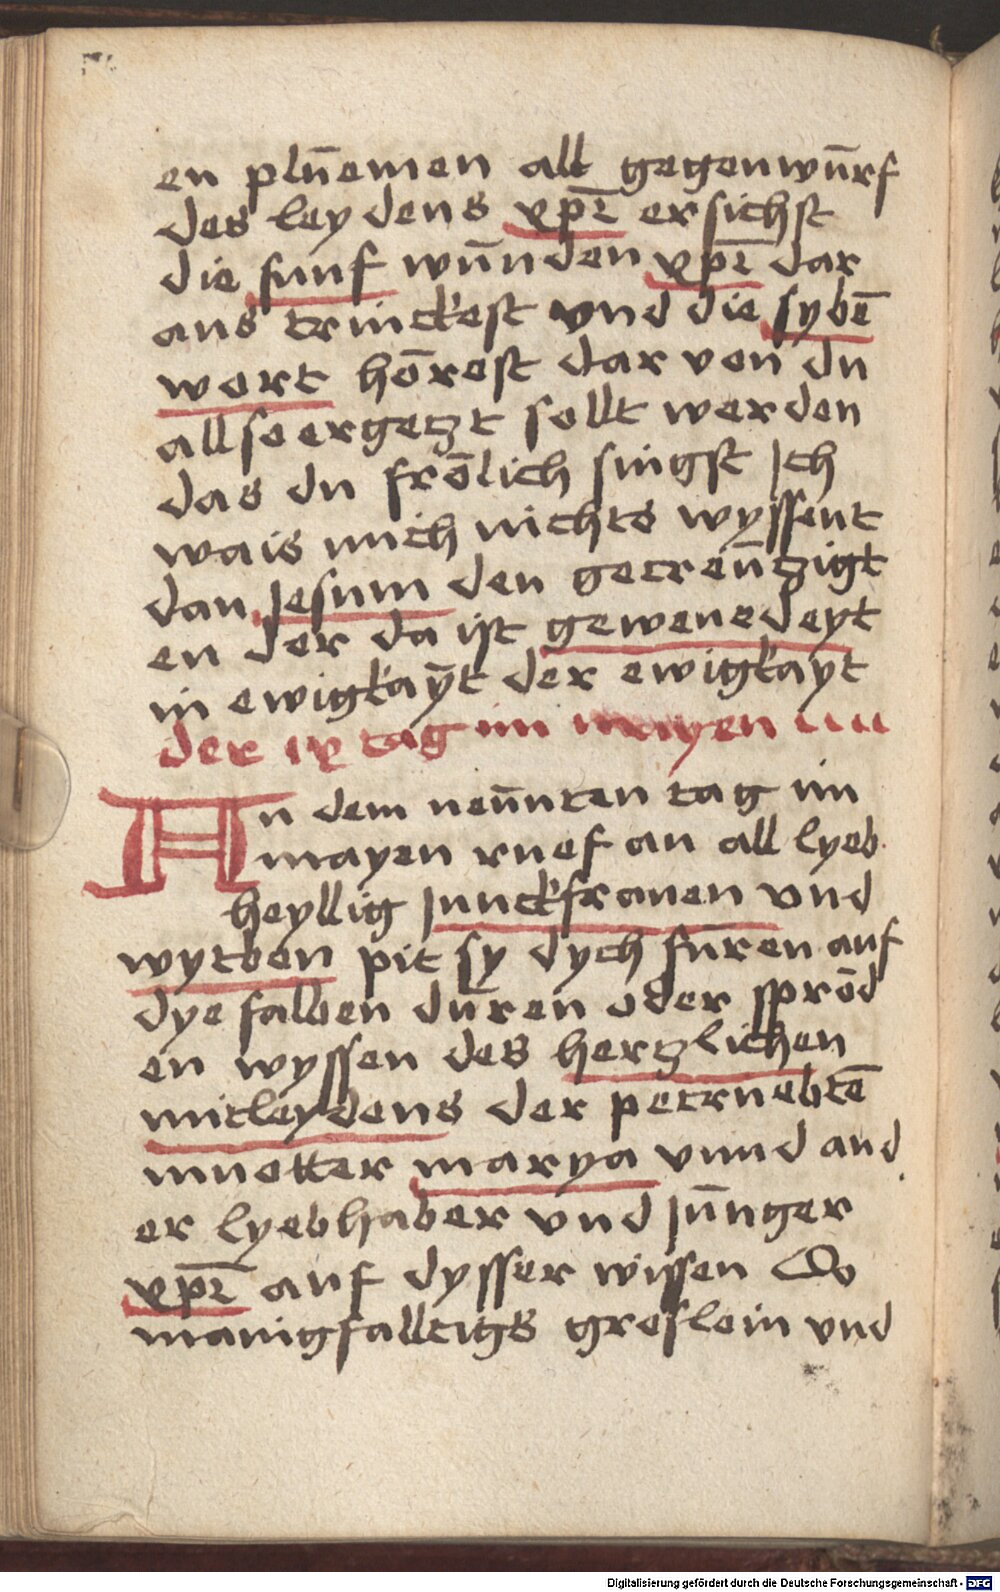 en plūemen allt gegenwūrf
des leydens xp̄i ersichst
die funf wūnden xp̄i dar
aus trinckest vnd die sybē
wort hōrest dar von du
allso ergetzt sollt werden
das du frōlich singst Ich
wais mich nichts wyssent
dan Jesum den gecreūtzigt
en der da ist gewenedeyt
in ewigkaȳt der ewigkayt
der ix tag im mayen
An dem neūnten tag im
mayen ruef an all lyeb
heyllig Junckfrauen vnd
wytben pit sy dych fūren auf
dye falben dūren oder sprōd
en wyssen des hertzlichen
mitleydens der petruebtē
muetter marya vnnd and
er lyebhaber vnd Jūnger
xp̄i auf dysser wissen Do
manigfalltigs greslein vnd
Digitalisierung gefördert durch die Deutsche Forschungsgemeinschaft - DFG